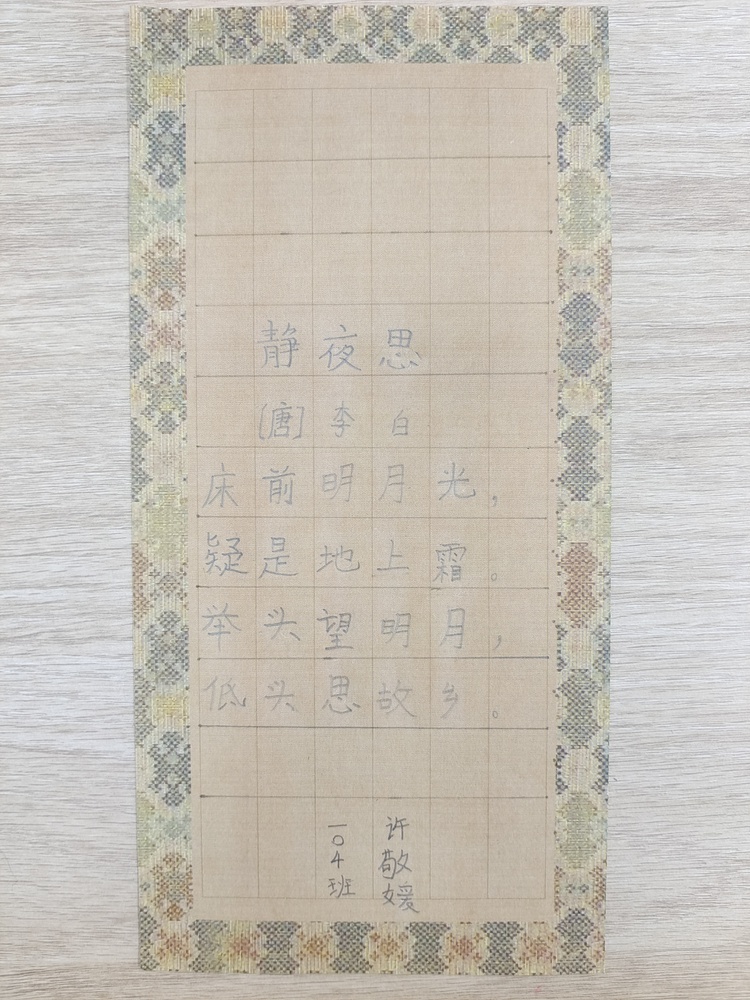 静夜思
[唐]李白
床前明月光，
疑是地上霜。
举头望明月，
低头思故乡。
许敬媛
一〇4班